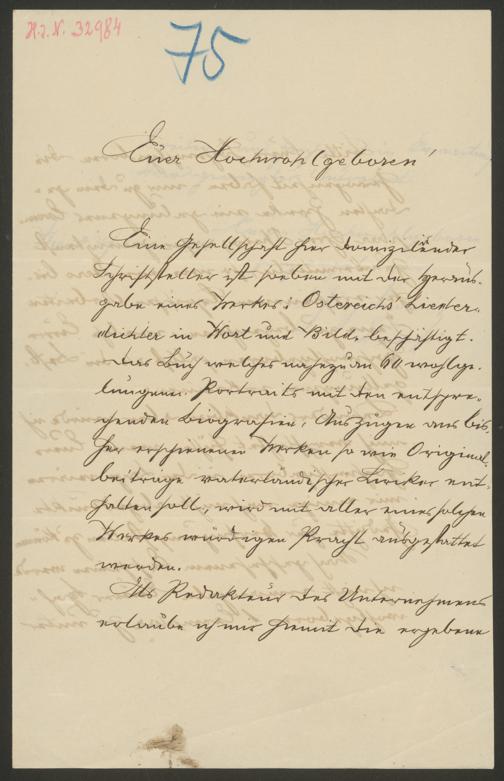 H.I.N. 32984
75
Euer Hochwohlgeboren!
Eine Gesellschaft hier domizilirender
Schriftsteller ist soeben mit der Heraus-
gabe eines Werkes: Östereichs Lieder-
dichter in Wort und Bild, beschäftigt.
Das Buch welches nahezu an 60 wohlge-
lungene Portraits mit den entspre-
chenden Biografien, Auszügen aus bis-
her erschienenen Werken so wie Original-
beiträge vaterländischer Liriker ent-
halten soll, wird mit aller eines solchen
Werkes würdigen Pracht ausgestattet
werden.
Als Redakteur des Unternehmens
erlaube ich mir hiemit die ergebene